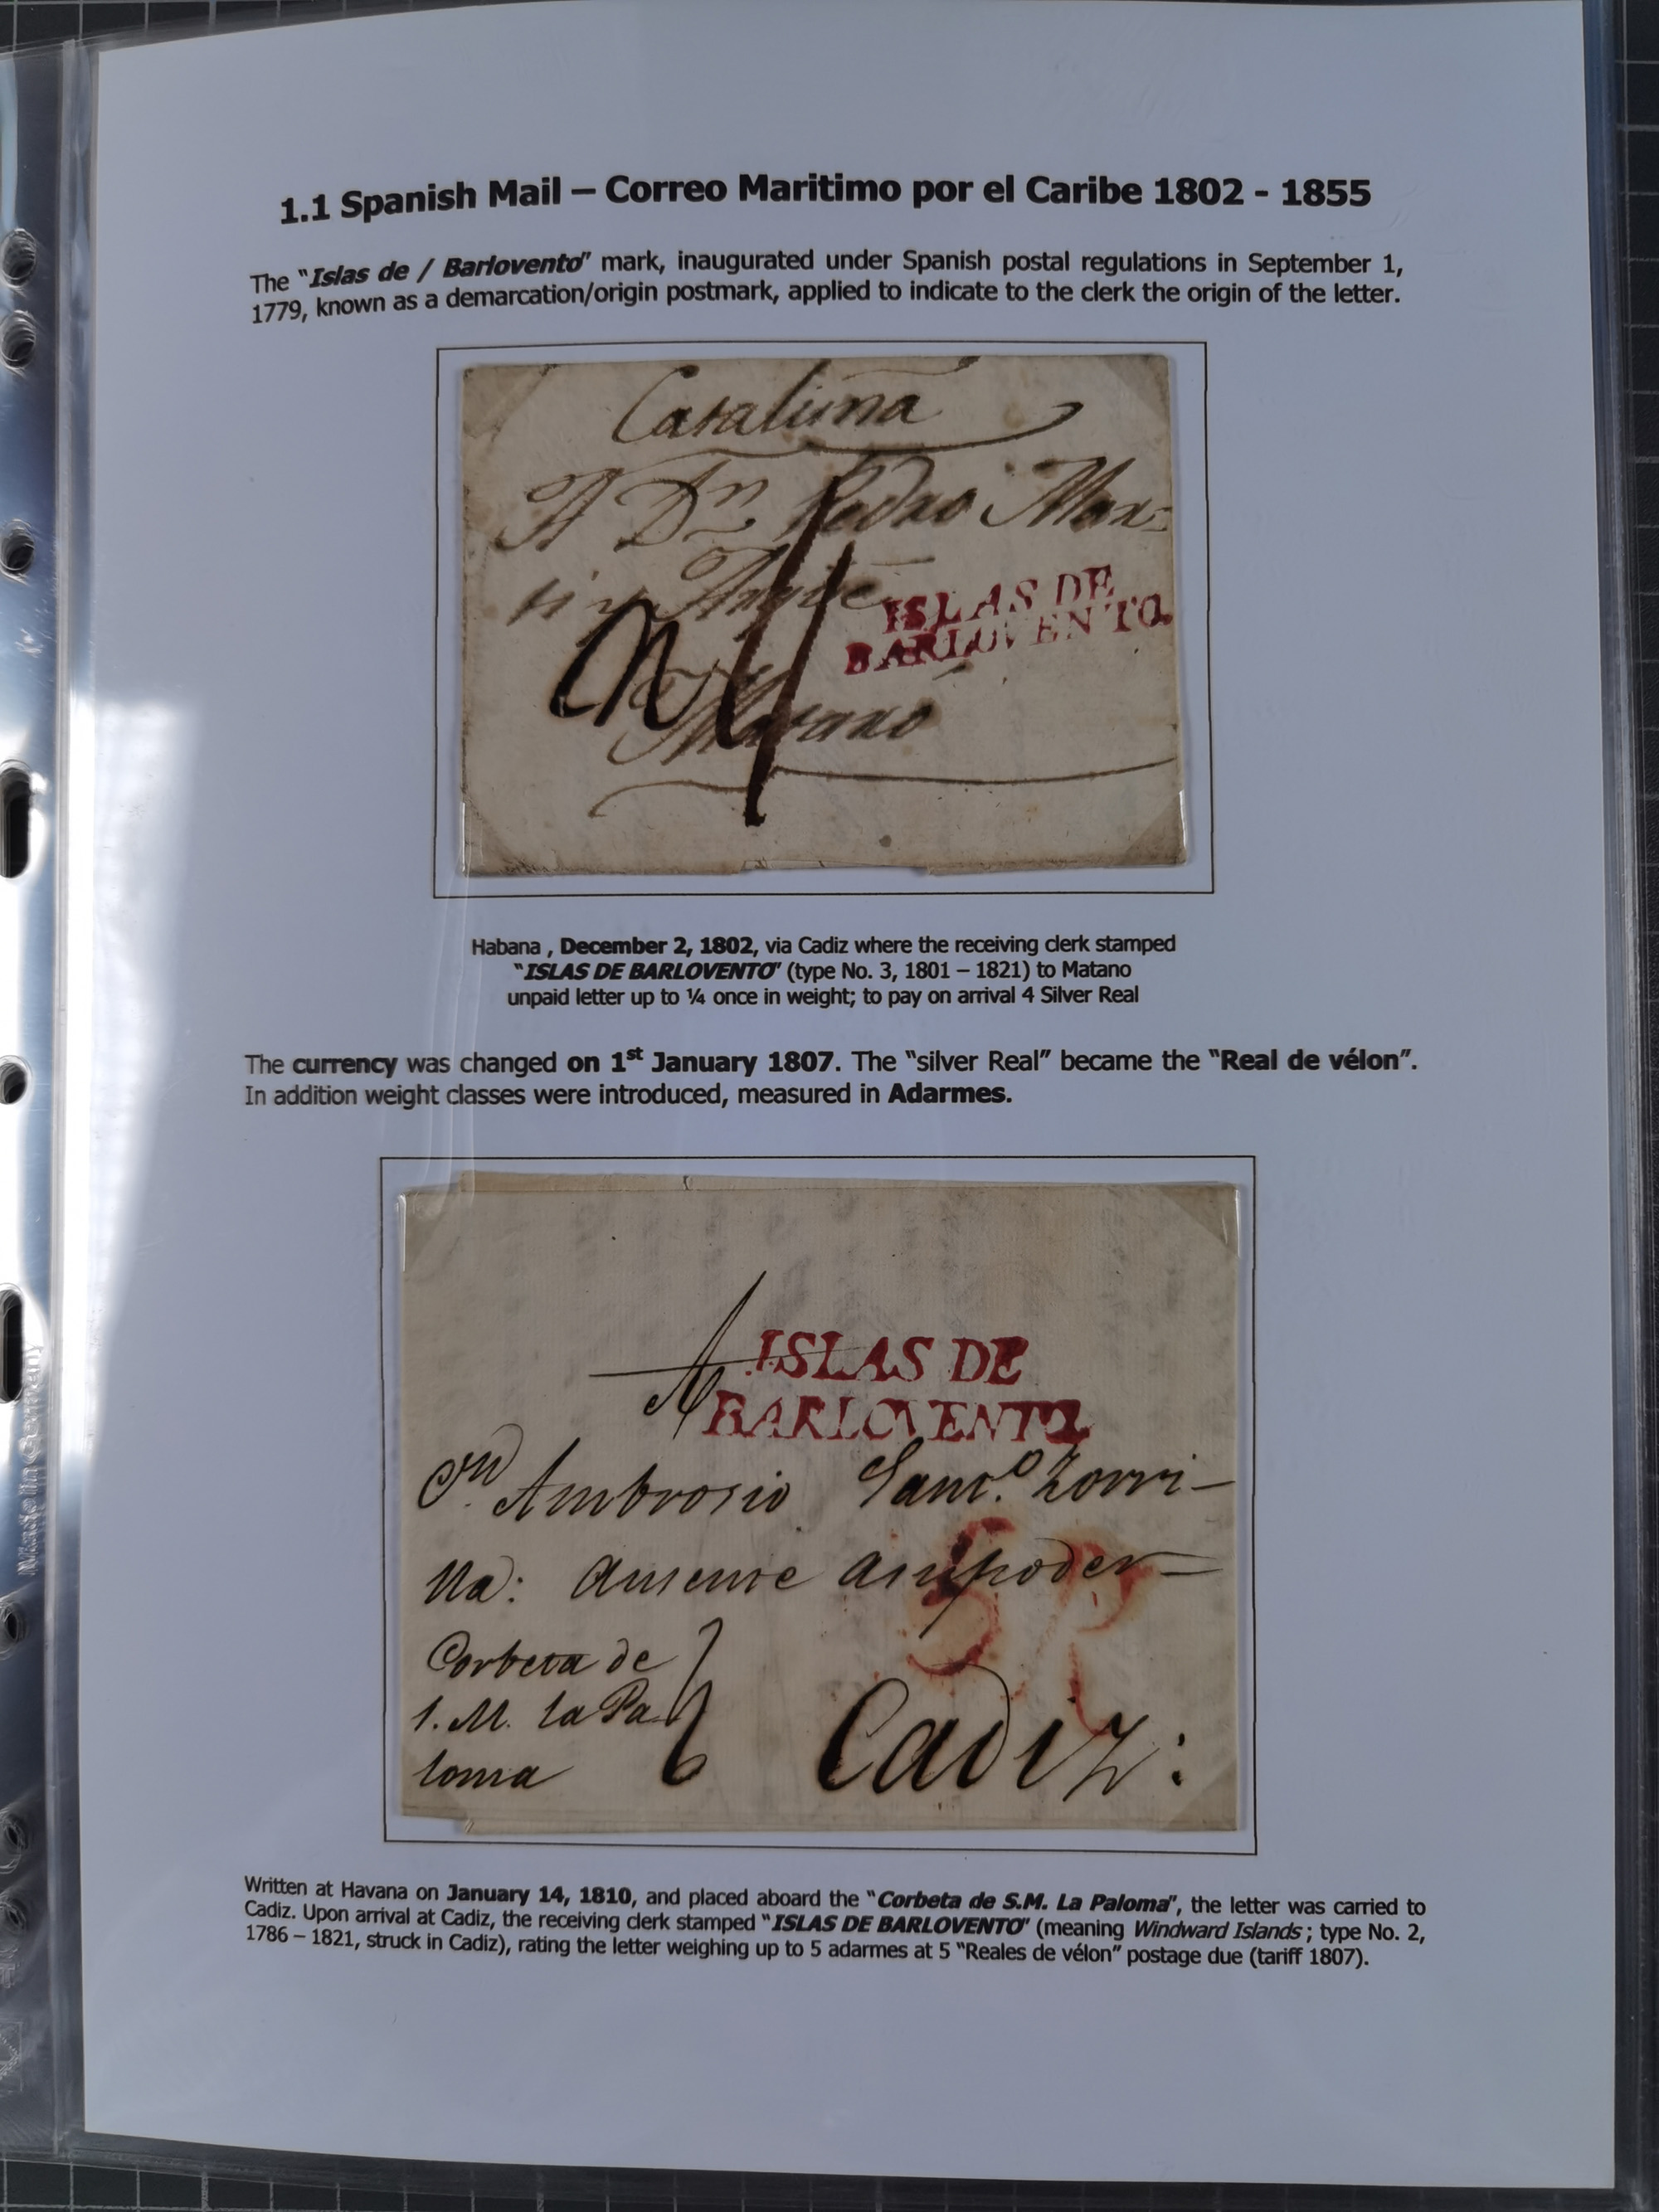 1.1 Spanish Mail – Correo Maritimo por el Caribe 1802 - 1855
The "Islas de / Barlovento" mark, inaugurated under Spanish postal regulations in September 1,
1779, known as a demarcation/origin postmark, applied to indicate to the clerk the origin of the letter.
Cataluña
A Dn Pedro Mar=
tin
ISLAS DE
BARLOVENTO.
4
Mataro
Habana , December 2, 1802, via Cadiz where the receiving clerk stamped
"ISLAS DE BARLOVENTO" (type No. 3, 1801 – 1821) to Matano
unpaid letter up to ¼ once in weight; to pay on arrival 4 Silver Real
The currency was changed on 1st January 1807. The "silver Real" became the "Real de vélon".
In addition weight classes were introduced, measured in Adarmes.
A
ISLAS DE
BARLOVENTO
Dn Ambrosio Sanco. Zorri-
lla: Ausente asupoder
5R
Corbeta de
S.M. la Pa
loma
Cadiz:
Written at Havana on January 14, 1810, and placed aboard the "Corbeta de S.M. La Paloma", the letter was carried to
Cadiz. Upon arrival at Cadiz, the receiving clerk stamped "ISLAS DE BARLOVENTO" (meaning Windward Islands ; type No. 2,
1786 – 1821, struck in Cadiz), rating the letter weighing up to 5 adarmes at 5 "Reales de vélon" postage due (tariff 1807).
Made in Germany